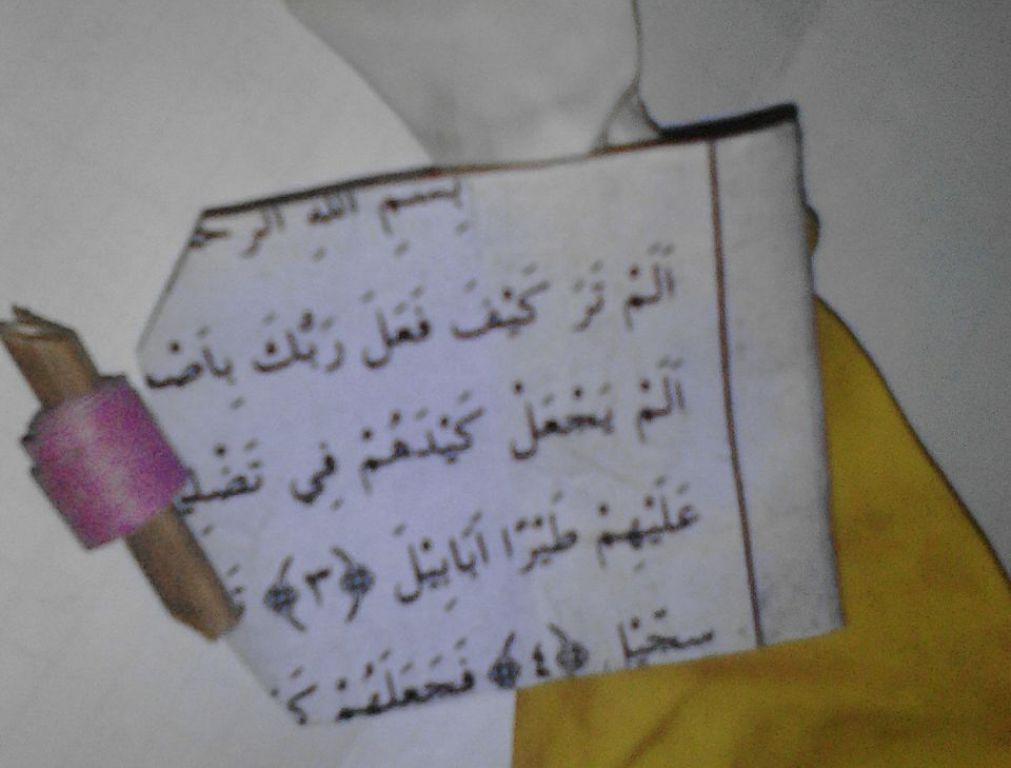 بِسْمِ اللهِ الرحـ
اَلَمْ تَرَ كَيْفَ فَعَلَ رَبُّكَ بِاَصْـ
اَلَمْ يَجْعَلْ كَيْدَهُمْ فِي تَضْلِيـ
عَلَيْهِمْ طَيْرًا اَبَابِيْلَ ﴿٣﴾ تَـ
سجيل ﴿٤﴾ فَجَعَلَهُمْ كَـ